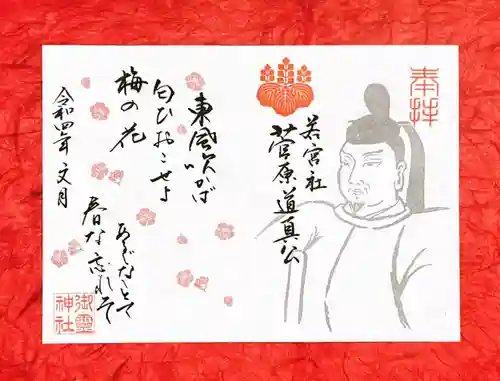 奉拝
若宮社
菅原道真公
東風吹かば
匂ひおこせよ
梅の花
あるじなしとて
春な忘れそ
令和四年 文月
御霊
神社